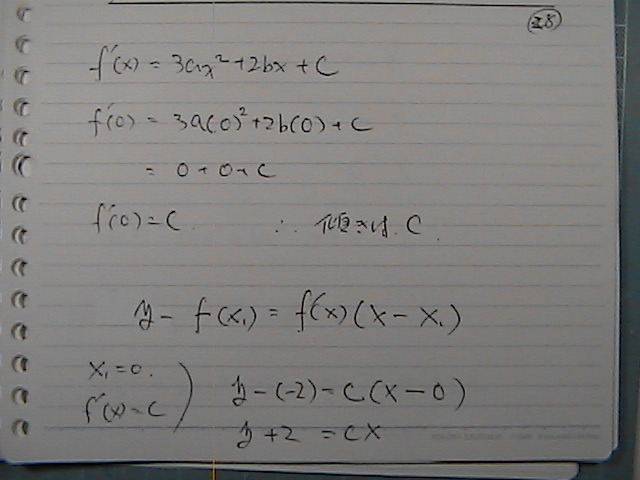 28
f'(x) = 3ax²+2bx+C
f'(0) = 3a(0)²+2b(0)+C
= 0+0+C
f'(0)=C ∴ 傾きは C.
y - f(x₁) = f'(x)(x-x₁)
x₁=0.
f'(x)=C
y-(-2)=C(x-0)
y+2 = cx